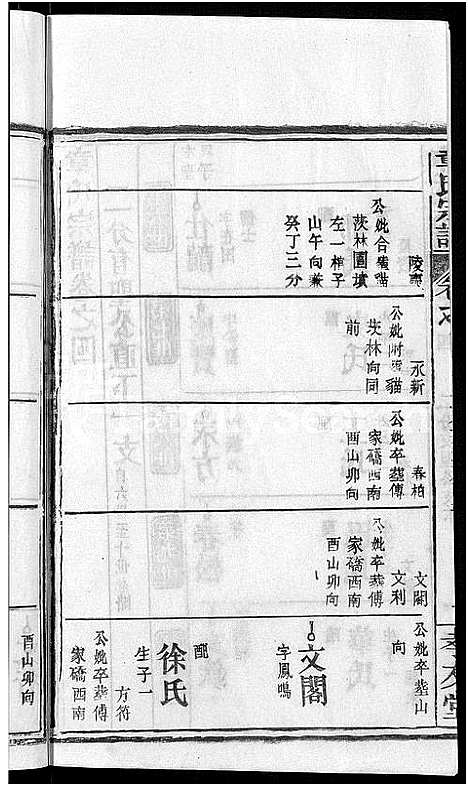 章氏宗譜
孝友堂
陵壽
公妣合葬貓
茨林園墳
左一棺子
山午向兼
癸丁三分
永新
公妣附葬貓
茨林向同
前
春柏
公妣卒葬傅
家礄西南
酉山卯向
文閣
文利
公妣卒葬傅
家礄西南
酉山卯向
公妣卒葬山
向
文閣
字鳳鳴
配
徐氏
生子一
方符
公妣卒葬傅
家礄西南
酉山卯向